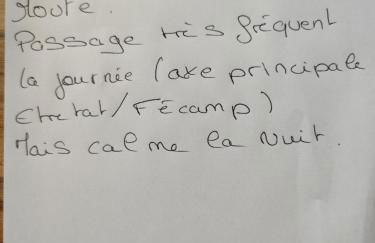 Route.
Passage très fréquent
la journée (axe principale
Etretat/Fécamp)
Mais calme la nuit.